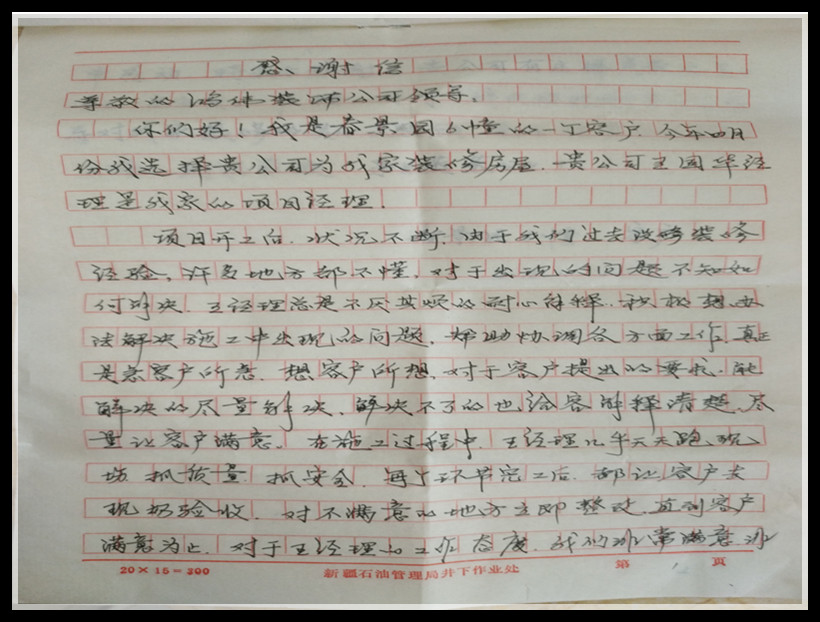 感谢信
尊敬的鸿林装饰公司领导:
你们好!我是春景园6幢的一个客户.今年四月
份我选择贵公司为我家装修房屋.贵公司王国华经
理是我家的项目经理.
项目开工后.状况不断.由于我们过去没有装修
经验、许多地方都不懂.对于出现的问题不知如
何解决.王经理总是不厌其烦的耐心解释.积极想办
法解决施工中出现的问题.帮助协调各方面工作.真正
是急客户所急.想客户所想.对于客户提出的要求.能
解决的尽量解决、解决不了的也给客解释清楚.尽
量让客户满意.在施工过程中.王经理几乎天天跑现
场.抓质量.抓安全.每个环节完工后.都让客户去
现场验收.对不满意的地方立即整改.直到客户
满意为止.对于王经理的工作态度.我们非常满意.非
20×15=300 新疆石油管理局井下作业处 第 页